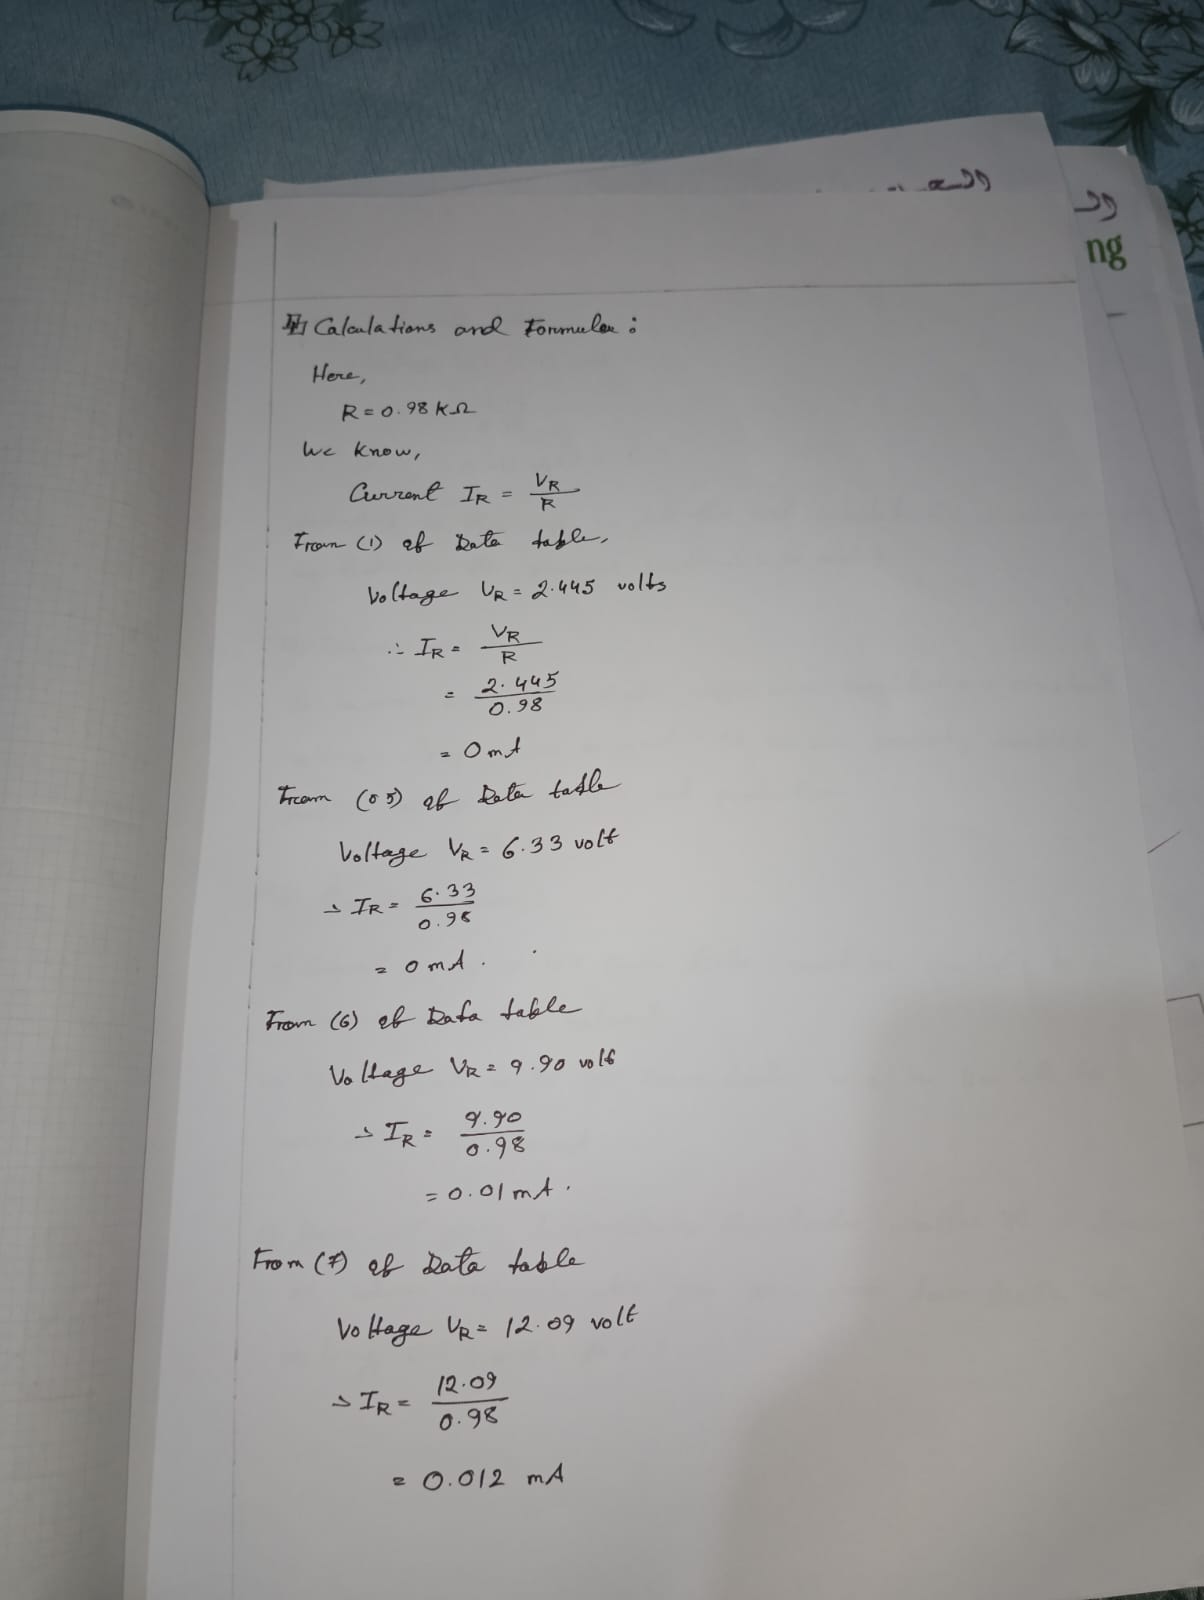 ng
Calculations and Formula :
Here,
R = 0.98 KΩ
We know,
Current IR = VR
R
From (1) of Data table,
Voltage VR = 2.445 volts
∴ IR = VR
R
= 2.445
0.98
= 0 mA
From (05) of Data table
Voltage VR = 6.33 volt
∴ IR = 6.33
0.98
= 0 mA.
From (6) of Data table
Voltage VR = 9.90 volt
∴ IR = 9.90
0.98
= 0.01 mA.
From (7) of Data table
Voltage VR = 12.09 volt
∴ IR = 12.09
0.98
= 0.012 mA